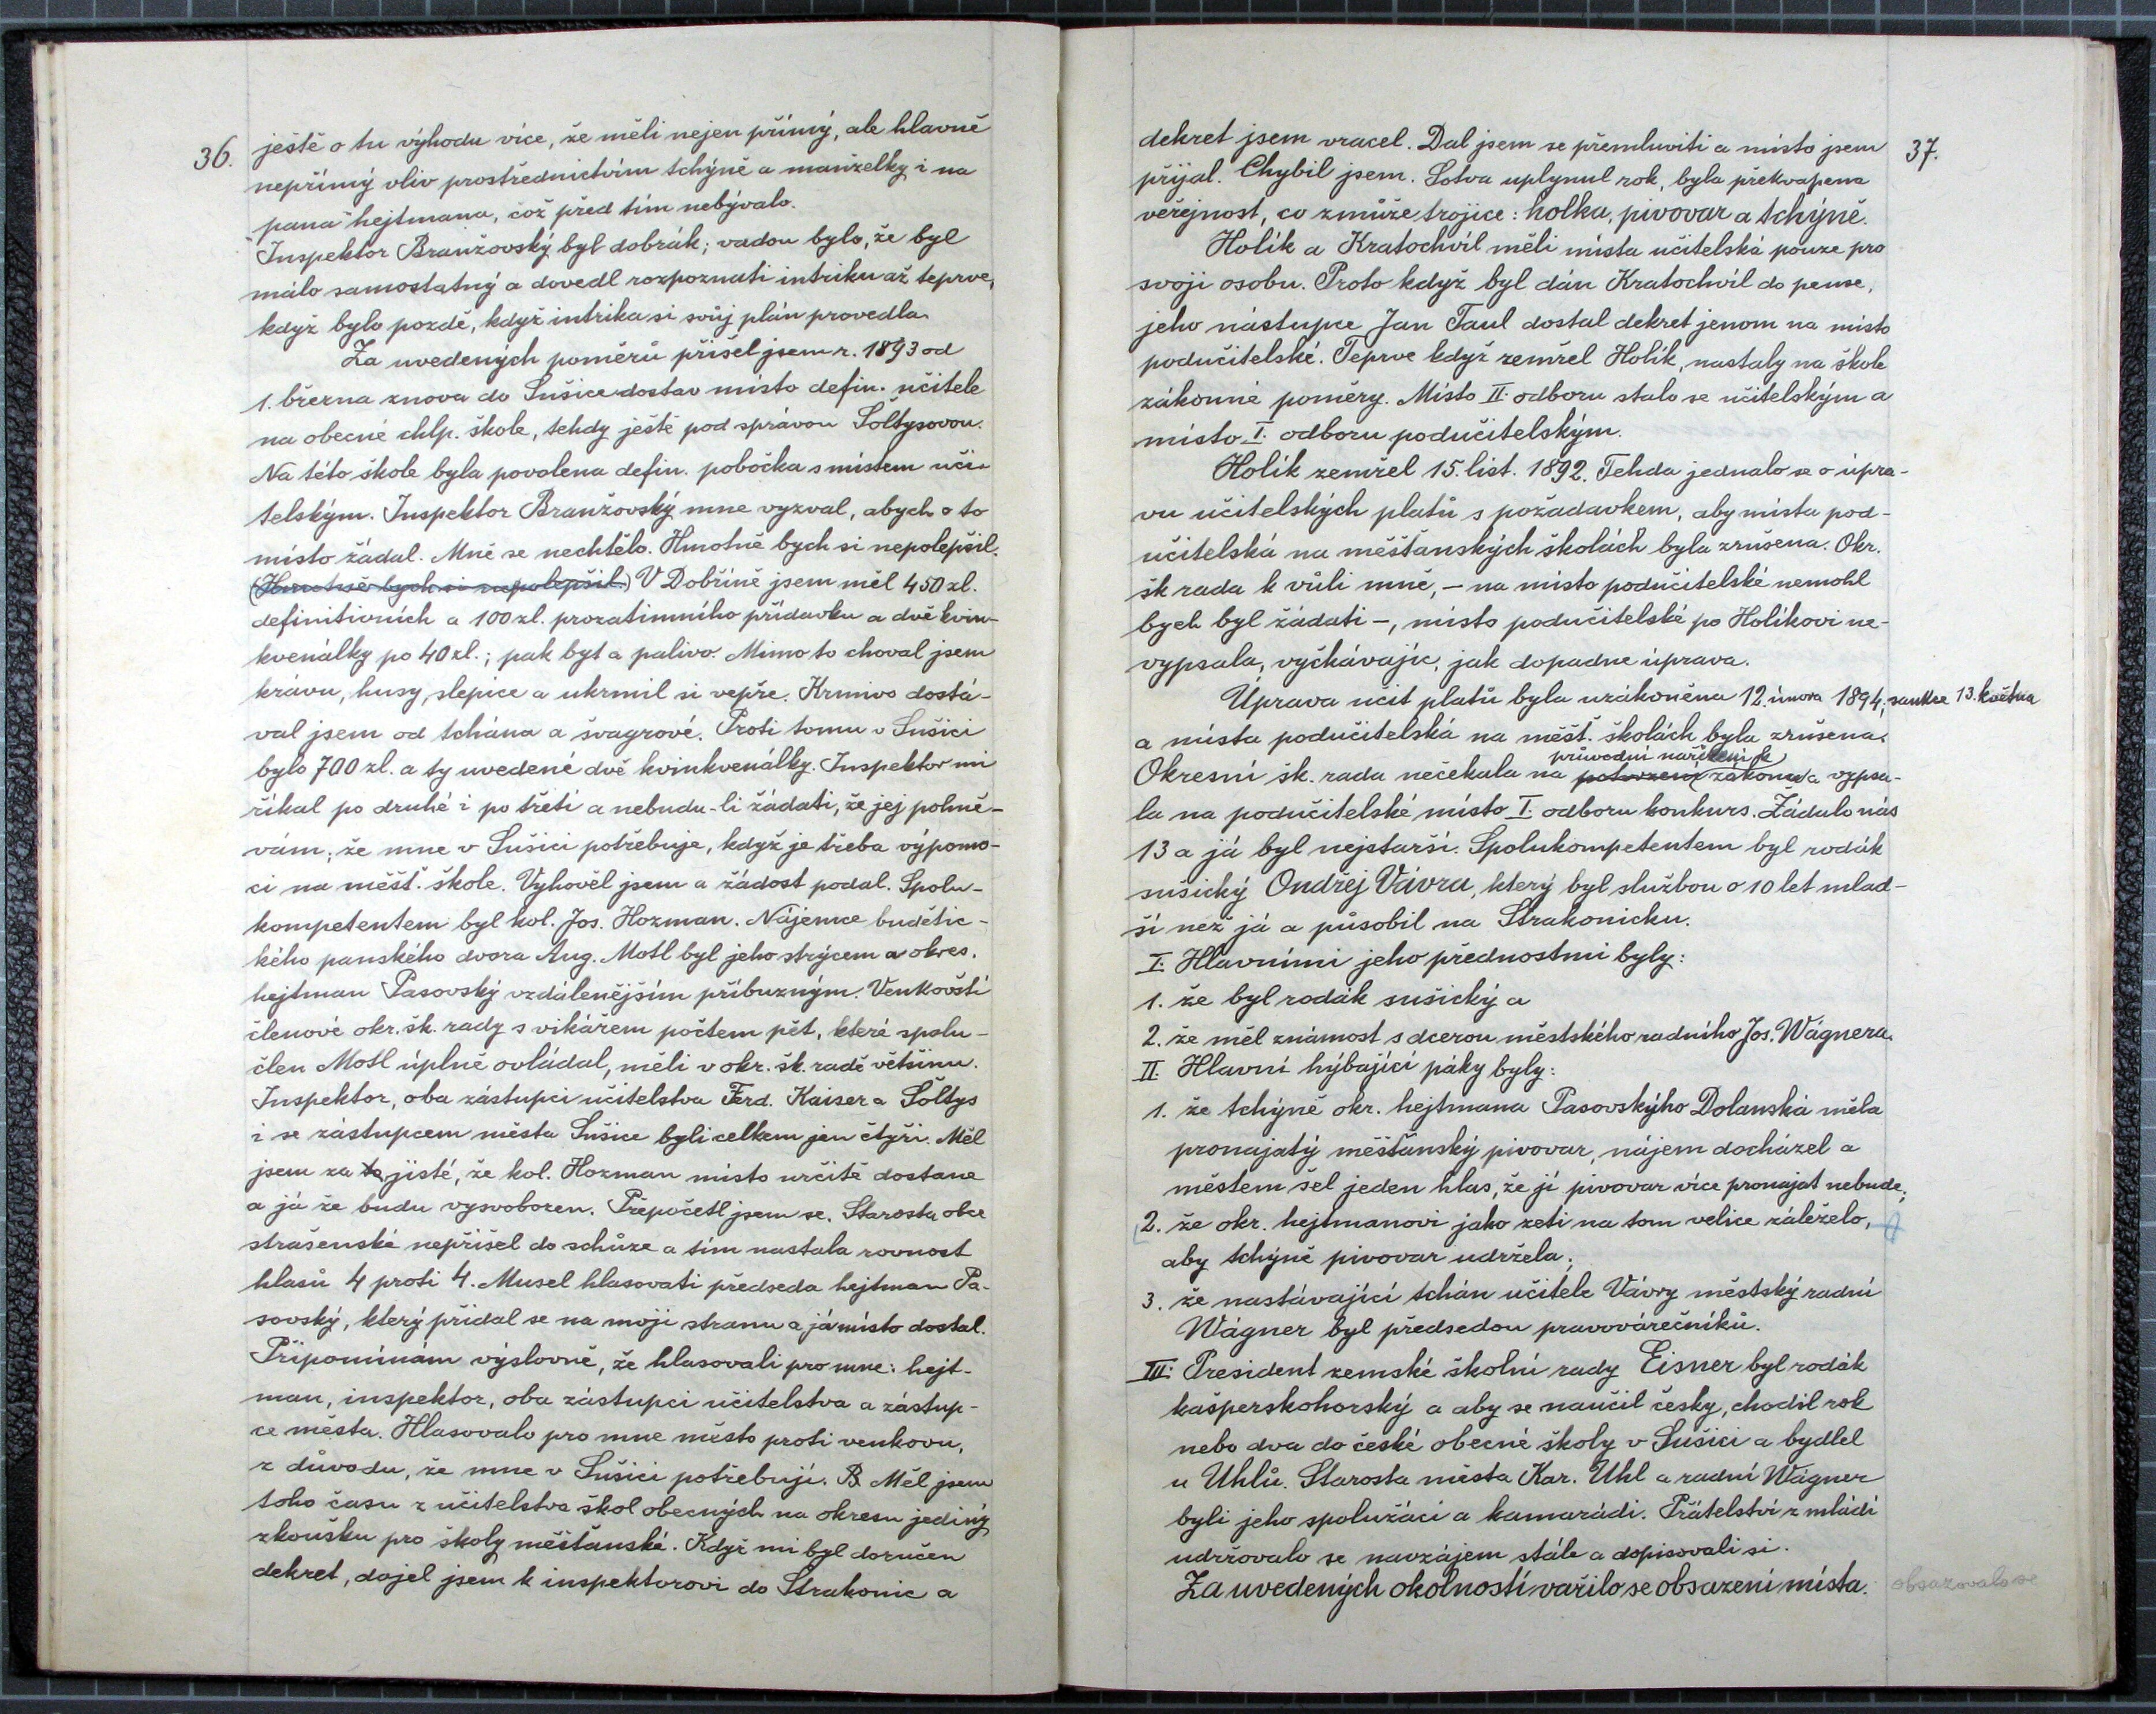 36.
ještě o tu výhodu více, že měli nejen přímý, ale hlavně
nepřímý vliv prostřednictvím tchýně a manželky i na
pana hejtmana, což před tím nebývalo.
Inspektor Branžovský byl dobrák; vadou bylo, že byl
málo samostatný a dovedl rozpoznati intriku až teprve,
když bylo pozdě, když intrika si svůj plán provedla.
Za uvedených poměrů přišel jsem r. 1893 od
1. března znova do Sušice dostav místo defin. učitele
na obecné chlp. škole, tehdy ještě pod správou Šoltysovou.
Na této škole byla povolena defin. pobočka s místem uči-
telským. Inspektor Branžovský mne vyzval, abych o to
místo žádal. Mně se nechtělo. Hmotně bych si nepolepšil.
(Hmotně bych si nepolepšil.) V Dobříně jsem měl 450 zl.
definitivních a 100 zl. prozatimního přídavku a dvě kvin-
kvenálky po 40 zl.; pak byt a palivo. Mimo to choval jsem
krávu, husy, slepice a ukrmil si vepře. Krmivo dostá-
val jsem od tchána a švagrové. Proti tomu v Sušici
bylo 700 zl. a ty uvedené dvě kvinkvenálky. Inspektor mi
říkal po druhé i po třetí a nebudu-li žádati, že jej pohně-
vám; že mne v Sušici potřebuje, když je třeba výpomo-
ci na měšť. škole. Vyhověl jsem a žádost podal. Spolu-
kompetentem byl kol. Jos. Hozman. Nájemce budětic-
kého panského dvora Aug. Motl byl jeho strýcem a okres.
hejtman Pasovský vzdálenějším příbuzným. Venkovští
členové okr. šk. rady s vikářem počtem pět, které spolu-
člen Motl úplně ovládal, měli v okr. šk. radě většinu.
Inspektor, oba zástupci učitelstva Ferd. Kaiser a Šoltys
i se zástupcem města Sušice byli celkem jen čtyři. Měl
jsem za to jisté, že kol. Hozman místo určitě dostane
a já že budu vysvobozen. Přepočetl jsem se. Starosta obce
strašenské nepřišel do schůze a tím nastala rovnost
hlasů 4 proti 4. Musel hlasovati předseda hejtman Pa-
sovský, který přidal se na moji stranu a já místo dostal.
Připomínám výslovně, že hlasovali pro mne: hejt-
man, inspektor, oba zástupci učitelstva a zástup-
ce města. Hlasovalo pro mne město proti venkovu,
z důvodu, že mne v Sušici potřebují. Měl jsem
toho času z učitelstva škol obecných na okresu jediný
zkoušku pro školy měšťanské. Když mi byl doručen
dekret, dojel jsem k inspektorovi do Strakonic a
37.
dekret jsem vracel. Dal jsem se přemluviti a místo jsem
přijal. Chybil jsem. Sotva uplynul rok, byla překvapena
veřejnost, co zmůže trojice: holka, pivovar a tchýně.
Holík a Kratochvíl měli místa učitelská pouze pro
svoji osobu. Proto když byl dán Kratochvíl do pense,
jeho nástupce Jan Taul dostal dekret jenom na místo
podučitelské. Teprve když zemřel Holík, nastaly na škole
zákonné poměry. Místo II. odboru stalo se učitelským a
místo I. odboru podučitelským.
Holík zemřel 15. list. 1892. Tehda jednalo se o úpra-
vu učitelských platů s požadavkem, aby místa pod-
učitelská na měšťanských školách byla zrušena. Okr.
šk rada k vůli mně, – na místo podučitelské nemohl
bych byl žádati –, místo podučitelské po Holíkovi ne-
vypsala, vyčkávajíc, jak dopadne úprava.
Úprava učit platů byla uzákoněna 12. února 1894; sankce 13. května
a místa podučitelská na měšť. školách byla zrušena.
průvodní nařízení k
Okresní šk. rada nečekala na potvrzení zákonu a vypsa-
la na podučitelské místo I. odboru konkurs. Žádalo nás
13 a já byl nejstarší. Spolukompetentem byl rodák
sušický Ondřej Vávra, který byl službou o 10 let mlad-
ší než já a působil na Strakonicku.
I. Hlavními jeho přednostmi byly:
1. že byl rodák sušický a
2. že měl známost s dcerou městského radního Jos. Wágnera.
II. Hlavní hýbající páky byly:
1. že tchýně okr. hejtmana Pasovskýho Dolanská měla
pronajatý měšťanský pivovar, nájem docházel a
městem šel jeden hlas, že jí pivovar více pronajat nebude;
2. že okr. hejtmanovi jako zeti na tom velice záleželo,
aby tchýně pivovar udržela;
3. že nastávající tchán učitele Vávry městský radní
Wágner byl předsedou pravovárečníků.
III. President zemské školní rady Eisner byl rodák
kašperskohorský a aby se naučil česky, chodil rok
nebo dva do české obecné školy v Sušici a bydlel
u Uhlů. Starosta města Kar. Uhl a radní Wágner
byli jeho spolužáci a kamarádi. Přátelství z mládí
udržovalo se navzájem stále a dopisovali si.
Za uvedených okolností vařilo se obsazení místa.
obsazovalo se